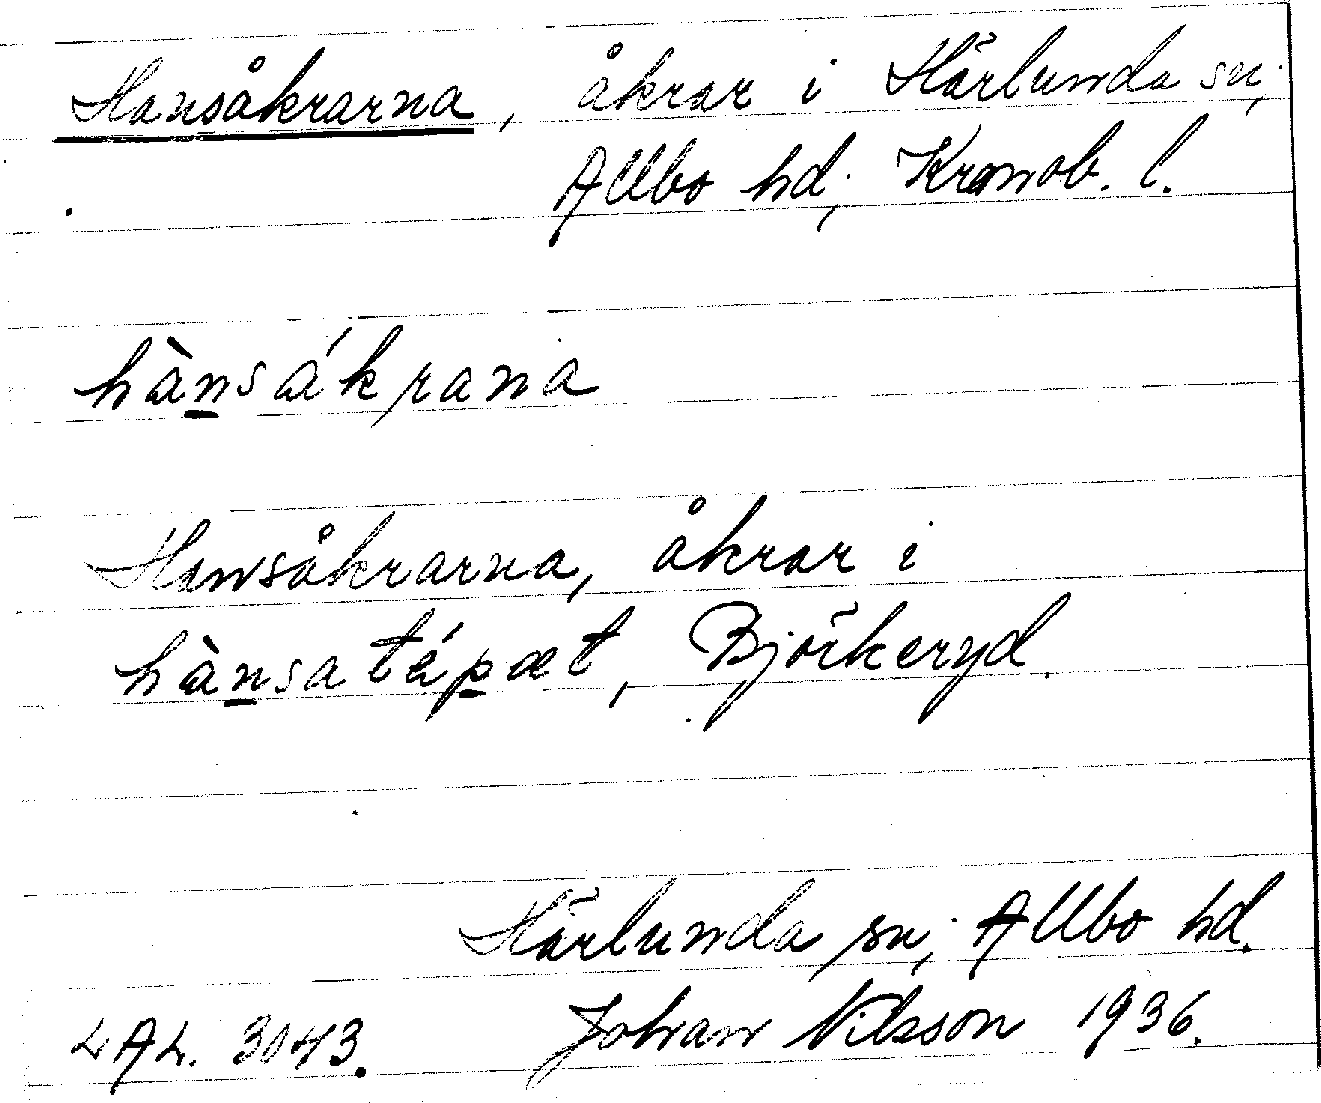 Hansåkrarna, åkrar i Härlunda sn,
Allbo hd, Kronob. l.
hànsákrana
Hansåkrarna, åkrar i
hànsatépæt, Björkeryd.
Härlunda sn, Allbo hd.
LAL. 3043. Johan Nilsson 1936.